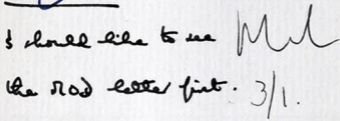 I should like to see
the MOD letter first. 3/1.